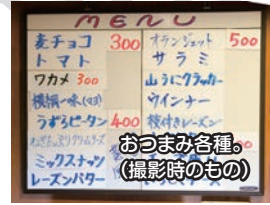 MENU
麦チョコ 300
トマト
ワカメ 300
うずらピータン 400
ミックスナッツ
レーズンバター
オランジェット 500
サラミ
山うにクラッカー
ウインナー
枝付きレーズン
おつまみ各種。
(撮影時のもの)